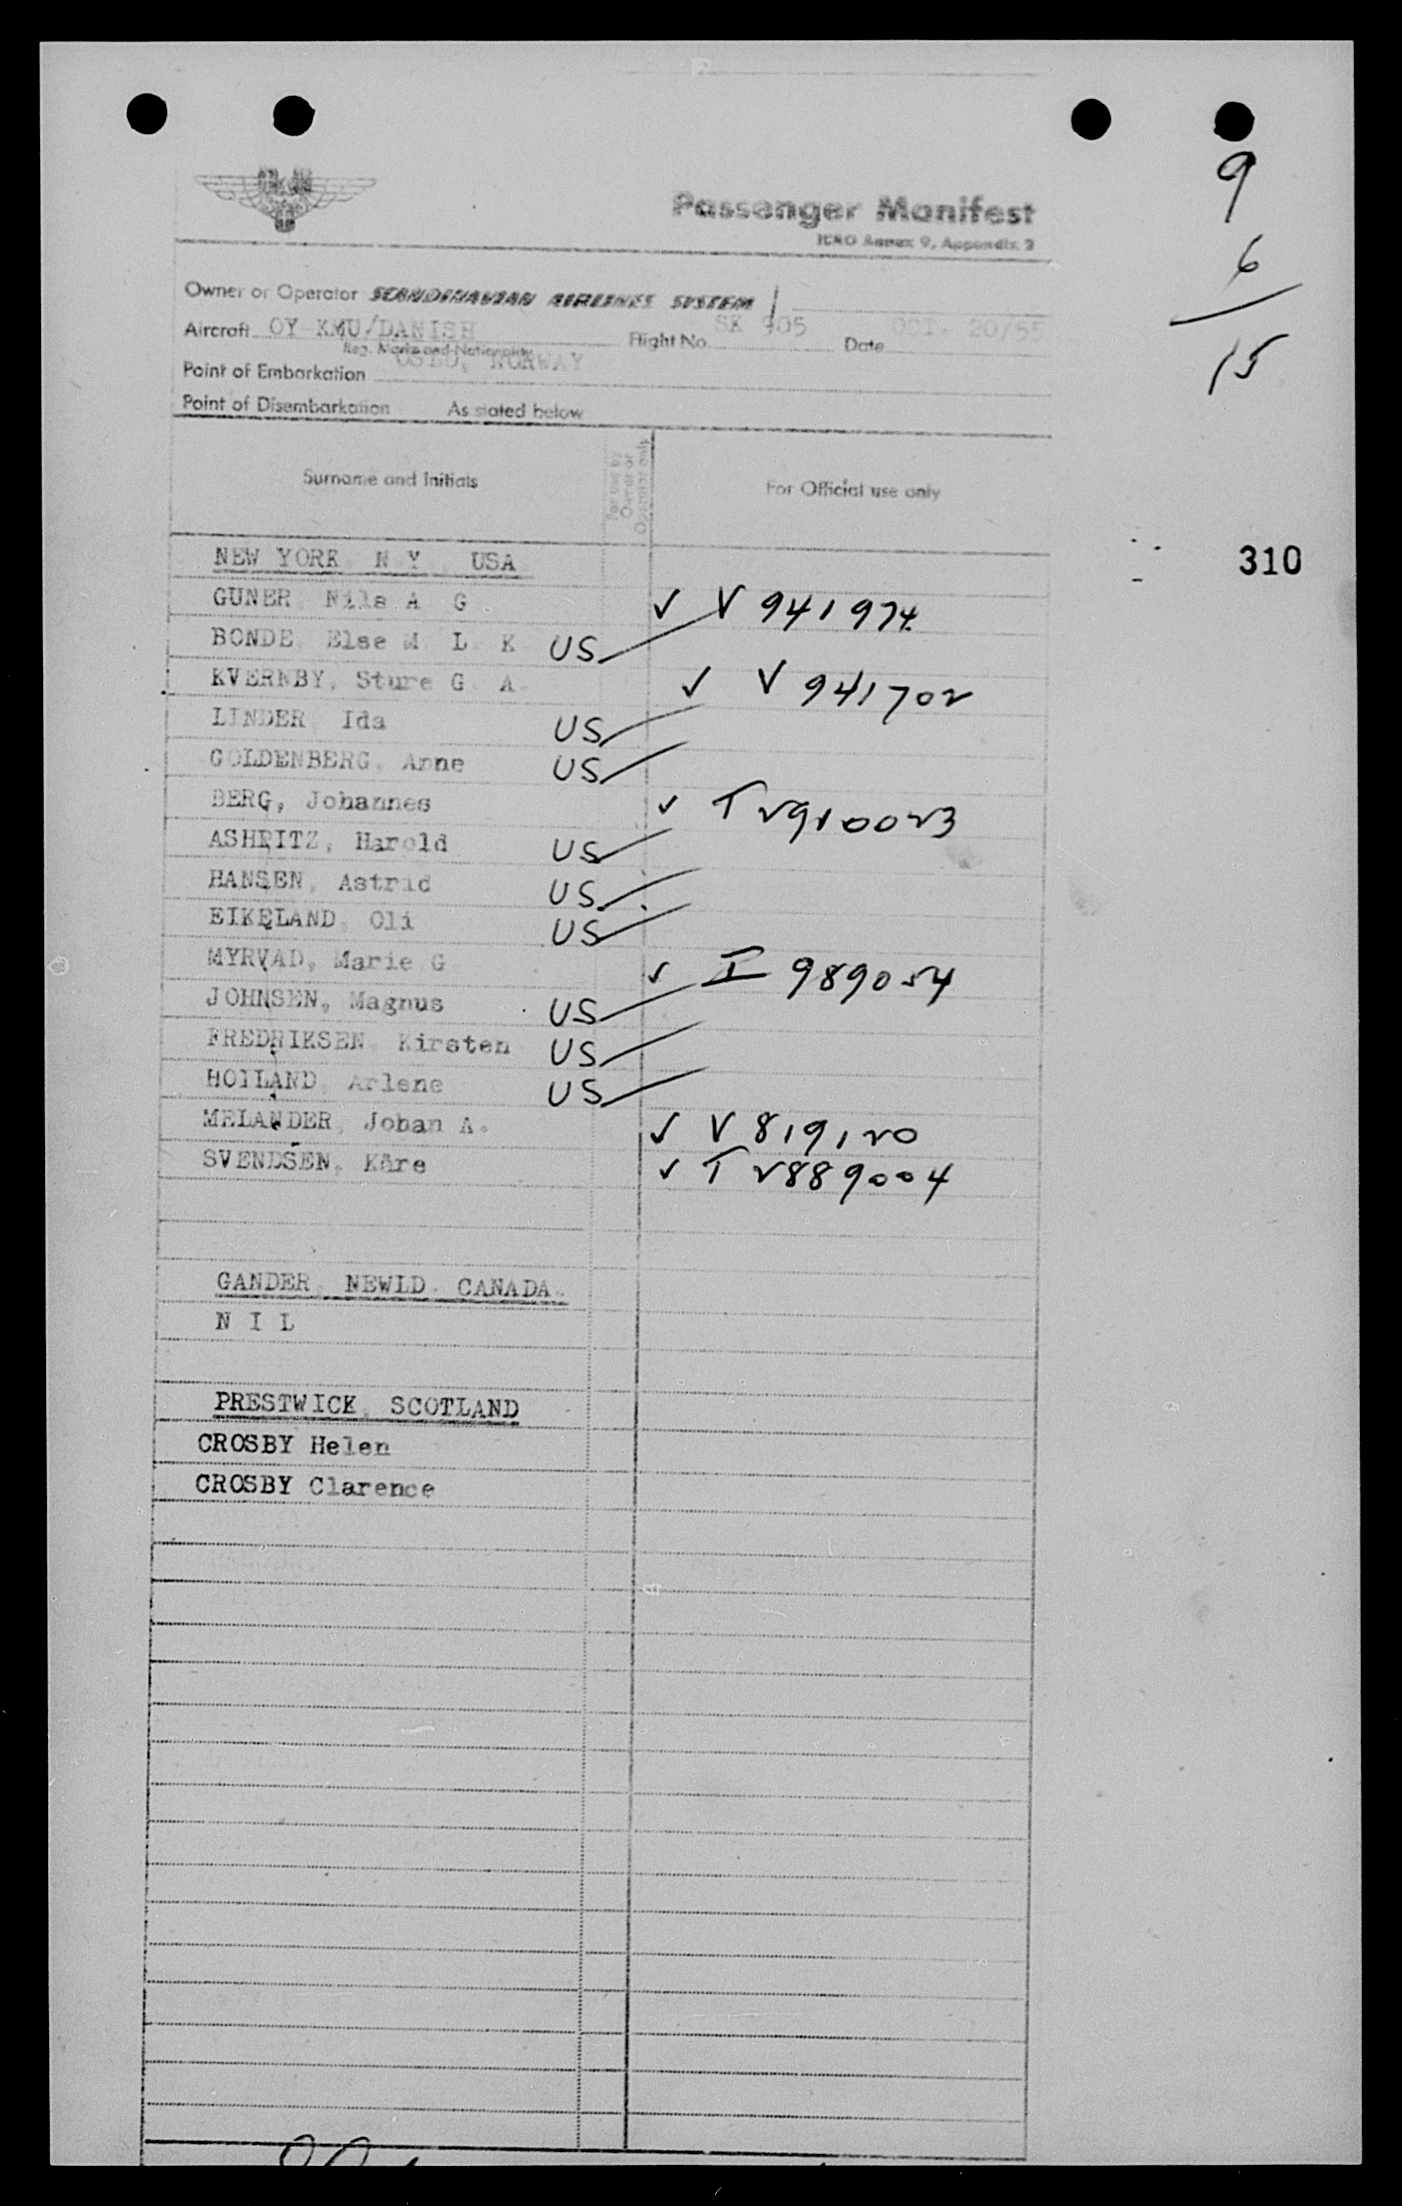 9
6
15
Passenger Manifest
ICAO Annex 9, Appendix 2
Owner or Operator SCANDINAVIAN AIRLINES SYSTEM
Aircraft OY-KMU/DANISH Flight No. SK 905 Date OCT. 20/55
Reg. Marks and Nationality
Point of Embarkation OSLO, NORWAY
Point of Disembarkation As stated below
Surname and Initials For use by Owner or Operator only For Official use only
310
NEW YORK N Y USA
GUNER Nils A G ✓ V 941974
BONDE Else M L K US
KVERNBY, Sture G A ✓ V 941702
LINDER Ida US
GOLDENBERG, Anne US
BERG, Johannes ✓ T 2910023
ASHRITZ, Harold US
HANSEN, Astrid US
EIKELAND Oli US
MYRVAD, Marie G ✓ I 989054
JOHNSEN, Magnus US
FREDRIKSEN Kirsten US
HOILAND Arlene US
MELANDER, Johan A. ✓ V 819120
SVENDSEN, Kåre ✓ T 2889004
GANDER NEWLD CANADA
N I L
PRESTWICK SCOTLAND
CROSBY Helen
CROSBY Clarence